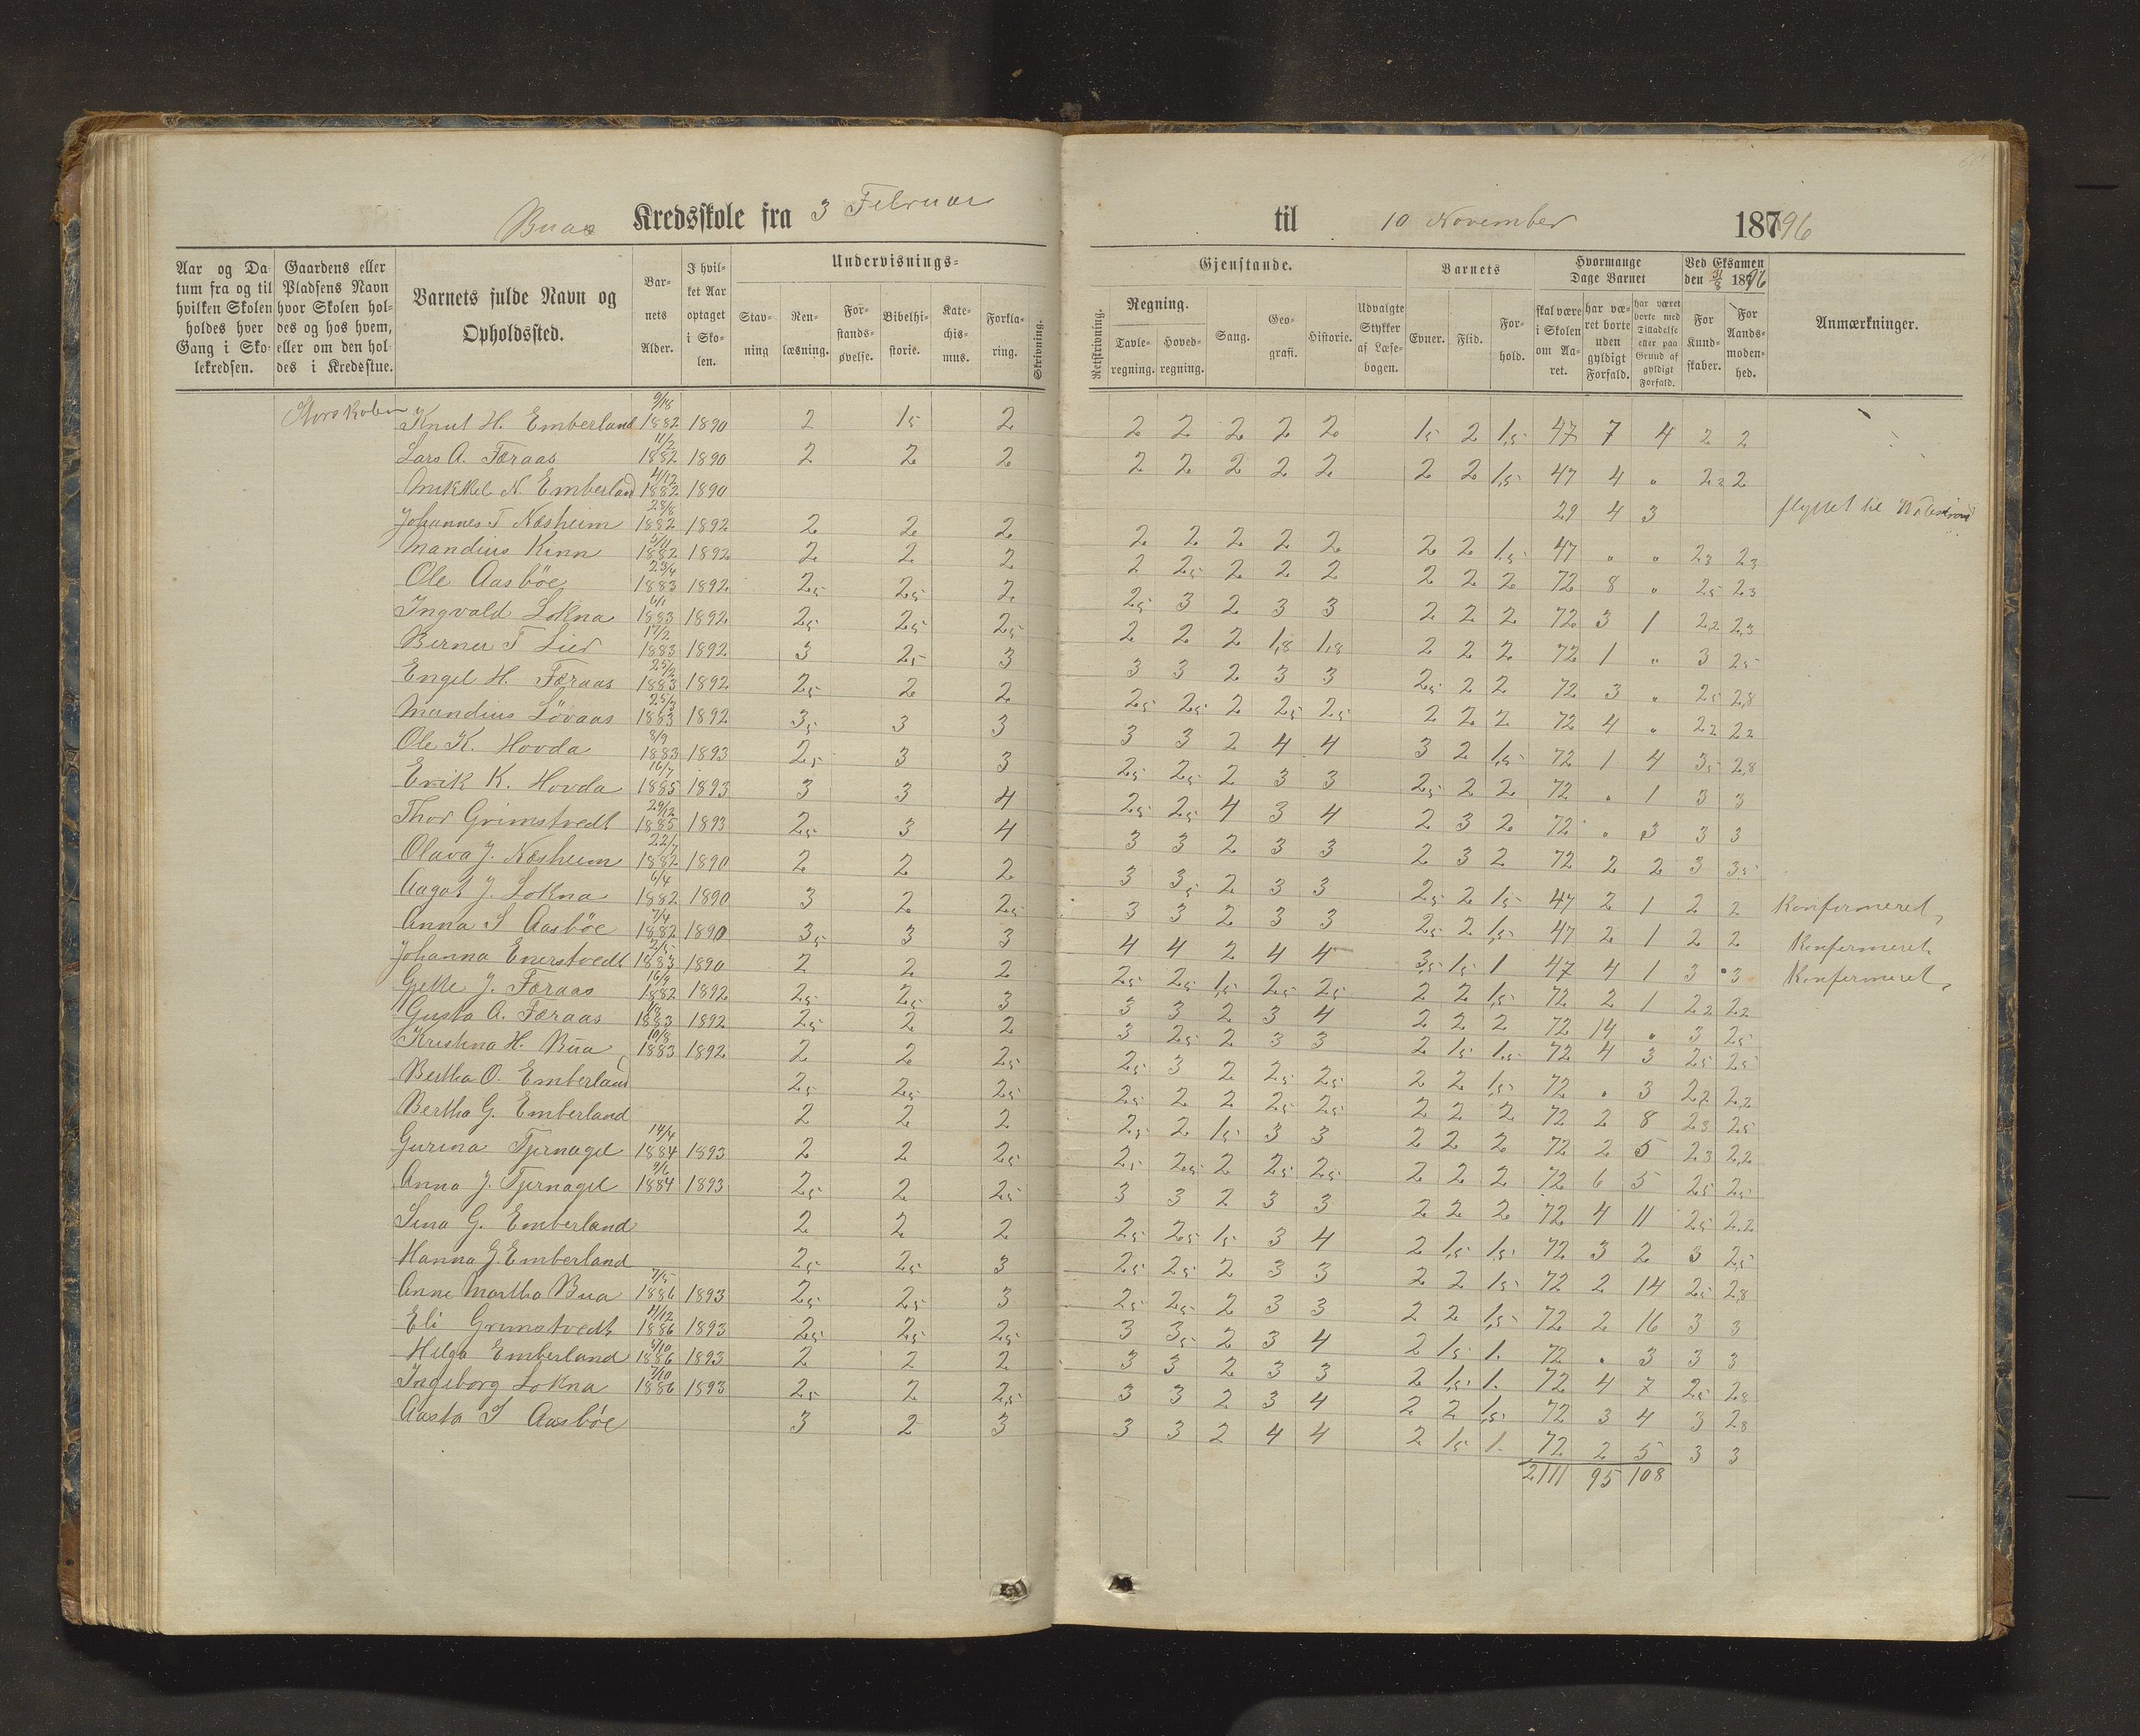 Buas Kredsskole fra 3 Februar til 10 November 18796
Aar og Datum fra og til hvilken Skolen holdes hver Gang i Skolekredsen.
Gaardens eller Pladsens Navn hvor Skolen holdes og hos hvem, eller om den holdes i Kredsstue.
Barnets fulde Navn og Opholdssted.
Barnets Alder.
I hvilket Aar optaget i Skolen.
Undervisnings-Gjenstande.
Stavning
Renlæsning.
Forstandsøvelse.
Bibelhistorie.
Katechismus.
Forklaring.
Skrivning.
Retskrivning.
Regning.
Tavleregning.
Hovedregning.
Sang.
Geografi.
Historie.
Udvalgte Stykker af Læsebogen.
Barnets
Evner.
Flid.
Forhold.
Hvormange Dage Barnet
skal være i Skolen om Aaret.
har været borte uden gyldigt Forfald.
har været borte med Tilladelse eller paa Grund af gyldigt Forfald.
Ved Eksamen den 31/8 1896
For Kundskaber.
For Aandsmodenhed.
Anmærkninger.
Storskolen
Knut H. Emberland 9/18 1882 1890 2 1,5 2 2 2 2 2 2 1,5 2 1,5 47 7 4 2 2
Lars A. Færaas 11/2 1882 1890 2 2 2 2 2 2 2 2 2 2 1,5 47 4 " 2,2 2
Mikkel N. Emberland 4/12 1882 1890 29 4 3 flyttet til
Johannes T Næsheim 28/8 1882 1892 2 2 2 2 2 2 2 2 2 2 1,5 47 " " 2,3 2,3
Mandius Kinn 5/11 1882 1892 2 2 2 2 2,5 2 2 2 2 2 2 72 8 " 2,5 2,3
Ole Aasböe 23/4 1883 1892 2,5 2,5 2 2,5 3 2 3 3 2 2 2 72 3 1 2,2 2,3
Ingvald Lokna 6/1 1883 1892 2,5 2,5 2,5 2 2 2 1,8 1,8 2 2 2 72 1 " 3 2,5
Berner T Lier 17/2 1883 1892 3 2,5 3 3 3 2 3 3 2,5 2 2 72 3 " 2,5 2,8
Engel H. Færaas 25/2 1883 1892 2,5 2 2 2,5 2,5 2 2,5 2,5 2 2 2 72 4 " 2,2 2,2
Mandius Lövaas 25/3 1883 1892 3,5 3 3 3 3 2 4 4 3 2 1,5 72 1 4 3,5 2,8
Ole K. Hovda 8/9 1883 1893 2,5 3 3 2,5 2,5 2 3 3 2,5 2 2 72 " 1 3 3
Erik K. Hovda 16/7 1885 1893 3 3 4 2,5 2,5 4 3 4 2 3 2 72 " 3 3 3
Thor Grimstvedt 29/12 1885 1893 2,5 3 4 3 3 2 3 3 2 3 2 72 2 2 3 3,5
Olava J. Næsheim 22/1 1882 1890 2 2 2 3 3,5 2 3 3 2,5 2 1,5 47 2 1 2 2 Konfirmeret,
Aagot J. Lokna 6/4 1882 1890 3 2 2,5 3 3 2 3 3 2,5 2 1,5 47 2 1 2 2 Konfirmeret.
Anna S Aasböe 7/4 1882 1890 3,5 3 3 4 4 2 4 4 3,5 1,5 1 47 4 1 3 3 Konfirmeret,
Johanna Enerstvedt 2/5 1883 1890 2 2 2 2,5 2,5 1,5 2,5 2,5 2 2 1,5 72 2 1 2,2 2,2
Gjette J. Færaas 16/9 1882 1892 2,5 2,5 3 3 3 2 3 4 2 2 2 72 14 " 3 2,5
Gusta A. Færaas 1883 1892 2,5 2 2 3 2,5 2 3 3 2 1,5 1,5 72 4 3 2,5 2,5
Kristina H. Bua 10/8 1883 1892 2 2 2,5 2,5 3 2 2,5 2,5 2 2 1,5 72 " 3 2,2 2,2
Bertha O. Emberland 2,5 2,5 2,5 2,5 2 2 2,5 2,5 2 2 2 72 2 8 2,3 2,5
Bertha G. Emberland 2 2 2 2,5 2 1,5 3 3 2 2 2 72 2 5 2,3 2,2
Gurina Tjernagel 14/4 1884 1893 2 2 2,5 2,5 2,5 2 2,5 2,5 2 2 2 72 6 5 2,5 2,5
Anna J. Tjernagel 9/6 1884 1893 2,5 2 2,5 3 3 2 3 3 2 2 2 72 4 11 2,5 2,2
Sina G. Emberland 2 2 2 2,5 2,5 1,5 3 4 2 1,5 1,5 72 3 2 3 2,5
Hanna J. Emberland 2,5 2,5 3 2,5 2,5 2 3 3 2 2 1,5 72 2 14 2,5 2,8
Anne Martha Bua 7/5 1886 1893 2,5 2,5 3 2,5 2,5 2 3 3 2 2 1,5 72 2 16 3 3
Eli Grimstvedt 11/12 1886 1893 2,5 2,5 2,5 3 3,5 2 3 4 2 1,5 1. 72 " 3 3 3
Helga Emberland 5/10 1886 1893 2 2 2 3 3 2 3 3 2 1,5 1. 72 4 7 2,5 2,8
Ingeborg Lokna 7/10 1886 1893 2,5 2 2,5 3 3 2 3 4 2 2 1,5 72 3 4 3 2,8
Aasta S Aasböe 3 2 3 3 3 2 4 4 2 1,5 1. 72 2 5 3 3
2111 95 108